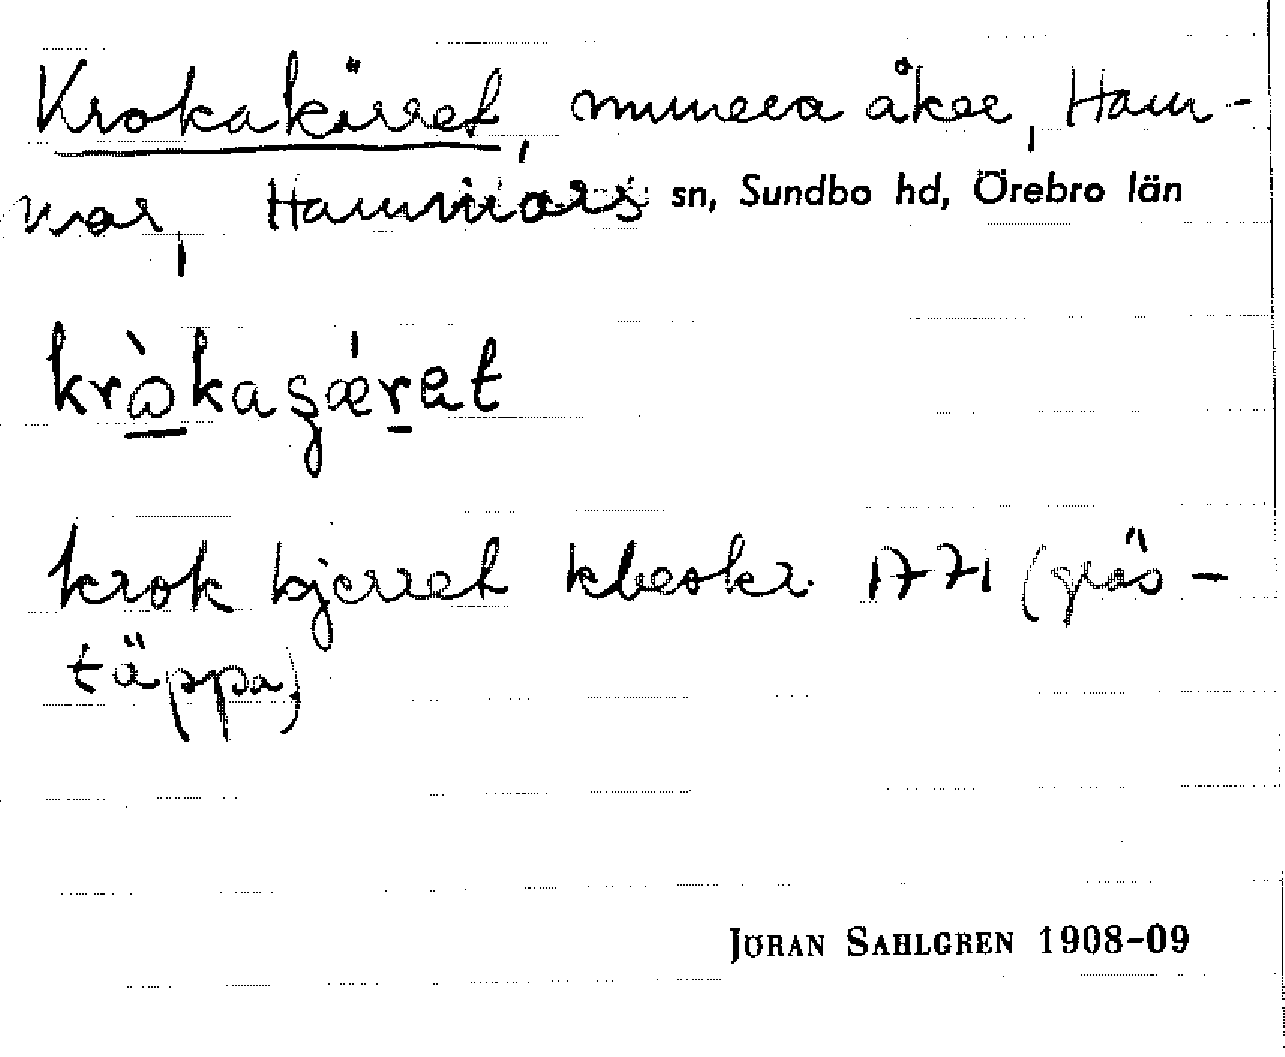 Krokakärret, numera åker, Ham-
mar, Hammars sn, Sundbo hd, Örebro län
krò̱kaʂǽṟet
krok kjerret kbeskr. 1771 (gräs-
täppa)
JÖRAN SAHLGREN 1908-09